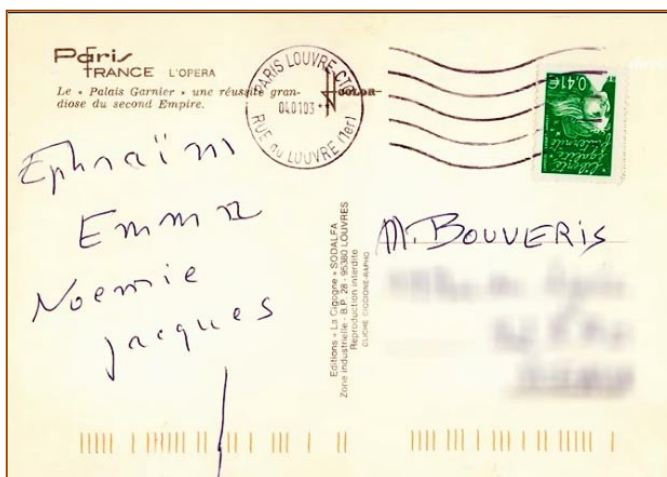 Paris
FRANCE L'OPERA
Le « Palais Garnier » une réussite gran-
diose du second Empire.
PARIS LOUVRE CT
040103
RUE du LOUVRE (1er)
0,41€
Liberté
égalité
fraternité
Ephraïm
Emma
Noemie
Jacques
Editions « La Cigogne » SODALFA
Zone industrielle - B.P. 28 - 95380 LOUVRES
Reproduction interdite
M. BOUVERIS